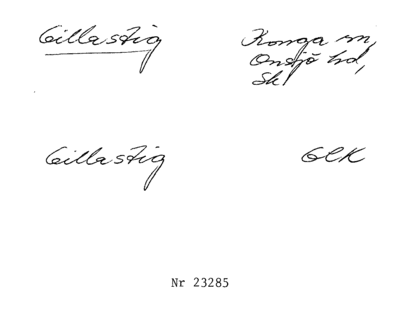 Gillastig
Konga sn,
Onsjö hd,
Sk
Gillastig
GCK
Nr 23285